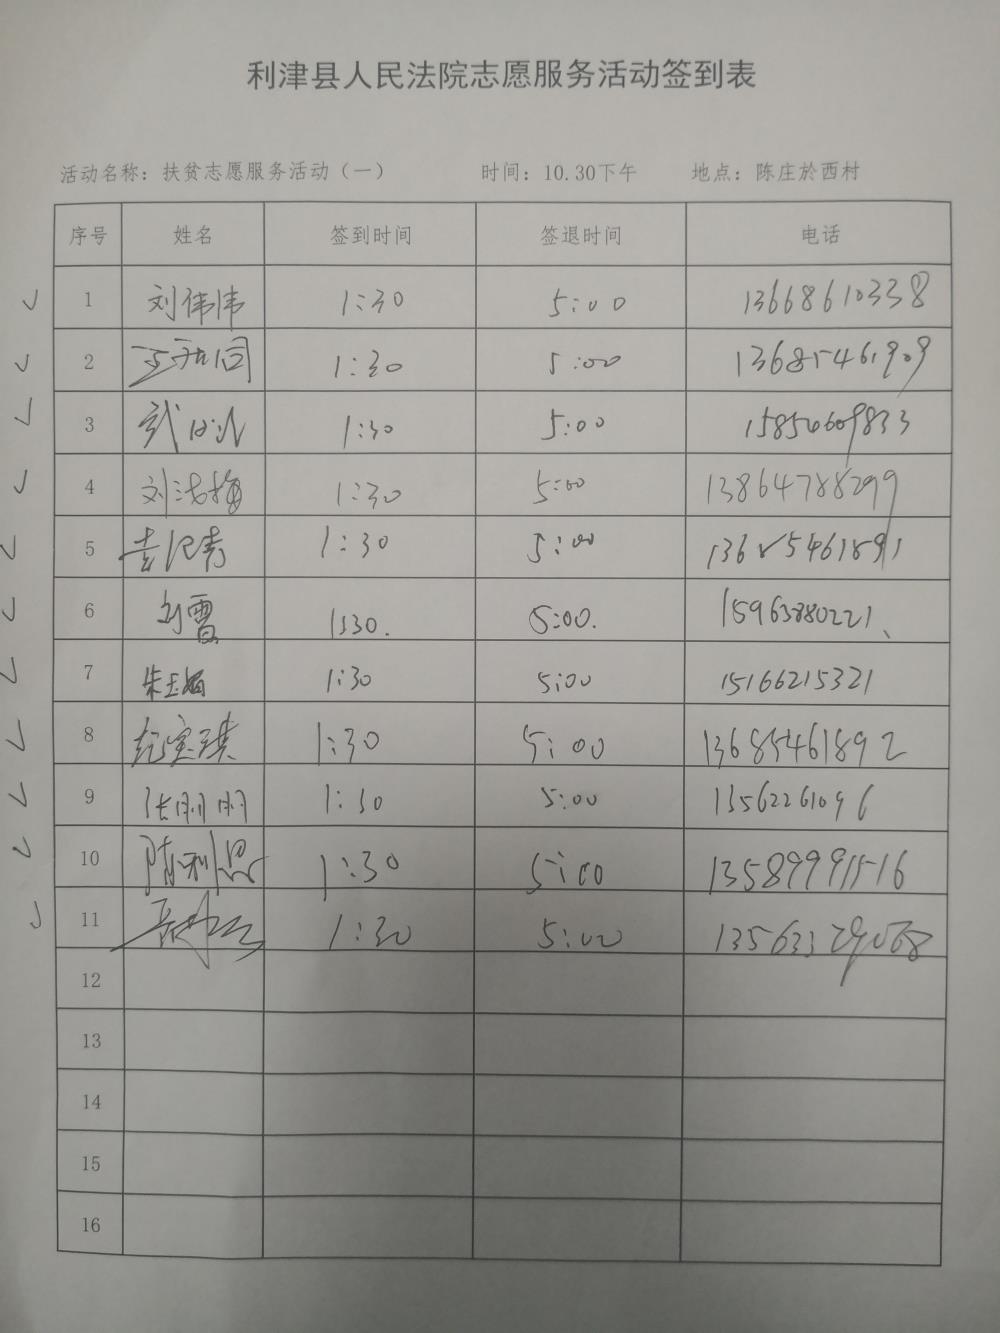 利津县人民法院志愿服务活动签到表
活动名称：扶贫志愿服务活动（一） 时间：10.30下午 地点：陈庄於西村
序号 姓名 签到时间 签退时间 电话
1 刘伟伟 1:30 5:00 13668610338
2 1:30 5:00 13685461909
3 1:30 5:00 15854609833
4 刘洁梅 1:30 5:00 13864788299
5 1:30 5:00 13685461891
6 刘雪 1:30. 5:00. 15963880221、
7 朱玉娟 1:30 5:00 15166215321
8 纪宝琪 1:30 5:00 13685461892
9 张明明 1:30 5:00 13562261096
10 陈利恩 1:30 5:00 13589991516
11 1:30 5:00
12
13
14
15
16